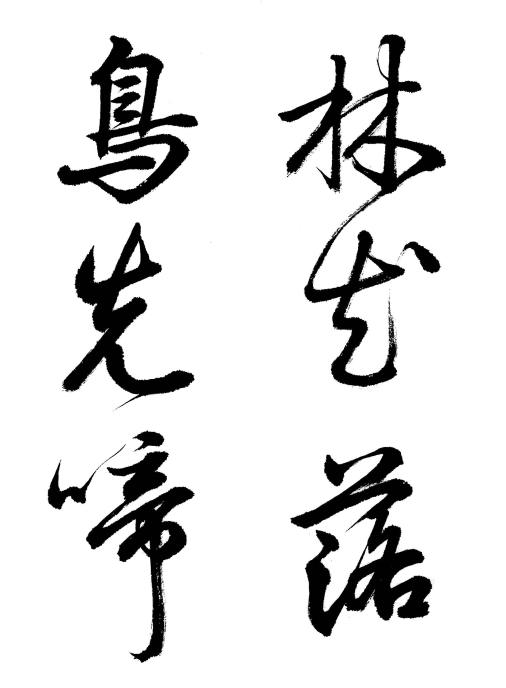 林花落
鳥先啼